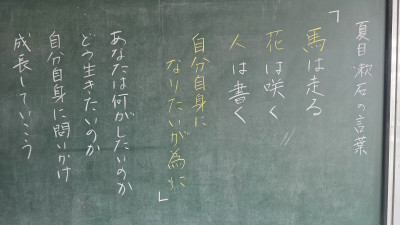 夏目漱石の言葉
「馬は走る
花は咲く
人は書く
自分自身に
なりたいが為に」
あなたは何がしたいのか
どう生きたいのか
自分自身に問いかけ
成長していこう